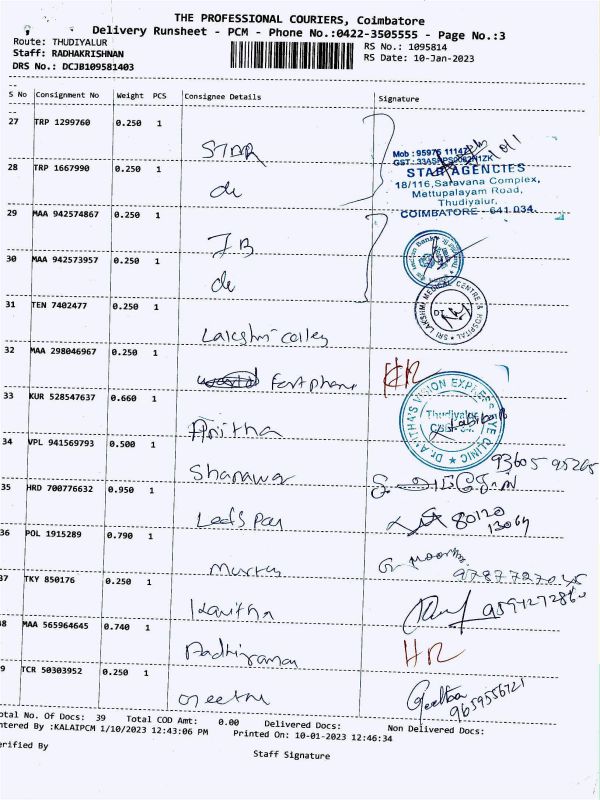 THE PROFESSIONAL COURIERS, Coimbatore
Delivery Runsheet - PCM - Phone No.:0422-3505555 - Page No.:3
Route: THUDIYALUR
Staff: RADHAKRISHNAN
DRS No.: DCJB109581403
RS No.: 1095814
RS Date: 10-Jan-2023
S No Consignment No Weight PCS Consignee Details Signature
27 TRP 1299760 0.250 1
STAR
28 TRP 1667990 0.250 1
do
Mob : 95976 11147
STAR AGENCIES
18/116,Saravana Complex,
Mettupalayam Road,
Thudiyalur,
COIMBATORE - 641 034.
29 MAA 942574867 0.250 1
IB
30 MAA 942573957 0.250 1
do
Indian Bank
31 TEN 7402477 0.250 1
Lakshmi
SRI LAKSHMI MEDICAL CENTRE & HOSPITAL
32 MAA 298046967 0.250 1
phone
33 KUR 528547637 0.660 1
Anitha
Dr. ANITHA'S VISION EXPRESS EYE CLINIC
Thudiyalur
34 VPL 941569793 0.500 1
93605 95265
35 HRD 700776632 0.950 1
80120
13064
36 POL 1915289 0.790 1
37 TKY 850176 0.250 1
Kavitha
38 MAA 565964645 0.740 1
HR
39 TCR 50303952 0.250 1
Geetha
Geetha
9659556721
Total No. Of Docs: 39 Total COD Amt: 0.00 Delivered Docs: Non Delivered Docs:
Entered By :KALAIPCM 1/10/2023 12:43:06 PM Printed On: 10-01-2023 12:46:34
Verified By
Staff Signature